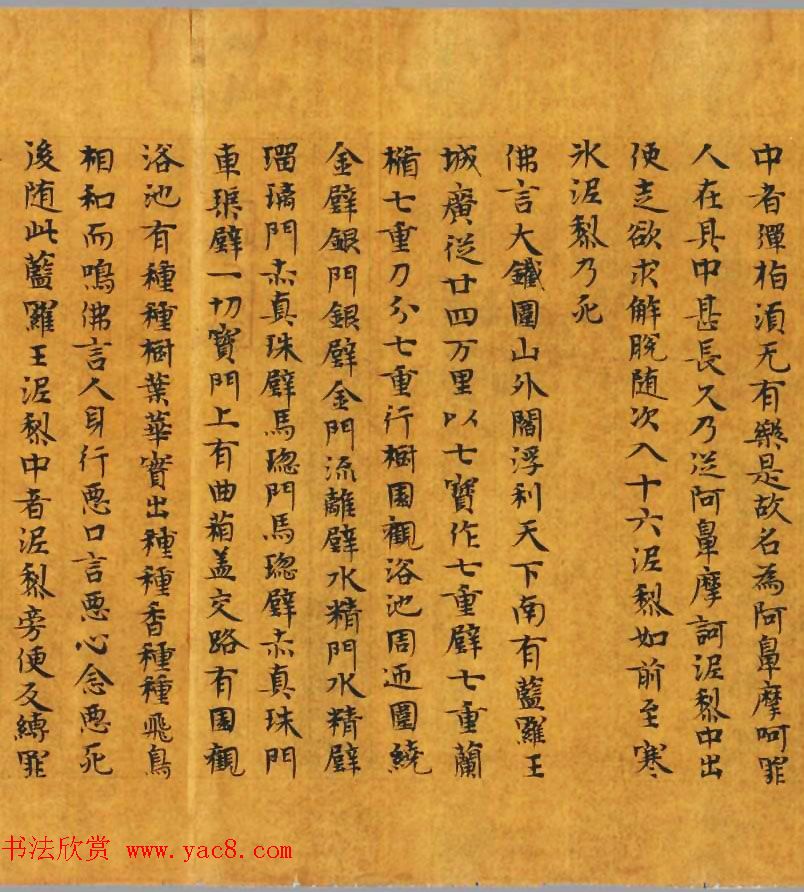 中者彈指湏无有樂是故名為阿鼻摩呵罪
人在其中甚長久乃従阿鼻摩訶泥黎中出
便走欲求解脫随次入十六泥黎如前至寒
氷泥黎乃死
佛言大鐵圍山外閻浮利天下南有藍羅王
城廣従廿四万里以七寶作七重壁七重蘭
楯七重刀分七重行樹園觀浴池周迊圍繞
金壁銀門銀壁金門流離壁水精門水精壁
瑠璃門赤真珠壁馬瑙門馬瑙壁赤真珠門
車璖壁一切寶門上有曲葙盖交路有園觀
浴池有種種樹葉華實出種種香種種飛鳥
相和而鳴佛言人身行悪口言悪心念悪死
後随此藍羅王泥黎中者泥黎旁便反縛罪
书法欣赏 www.yac8.com